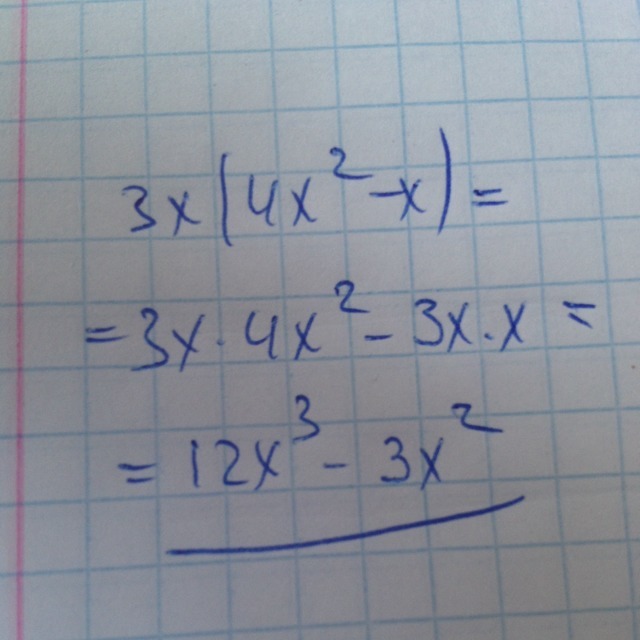 3x(4x² - x) =
= 3x · 4x² - 3x · x =
= 12x³ - 3x²